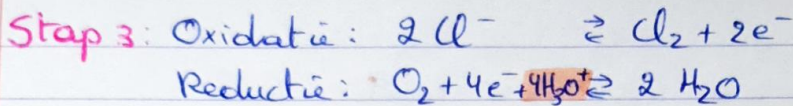 Stap 3: Oxidatie: 2 Cl⁻ ⇄ Cl₂ + 2e⁻
Reductie: O₂ + 4e⁻ + 4H₃O⁺ ⇄ 2 H₂O